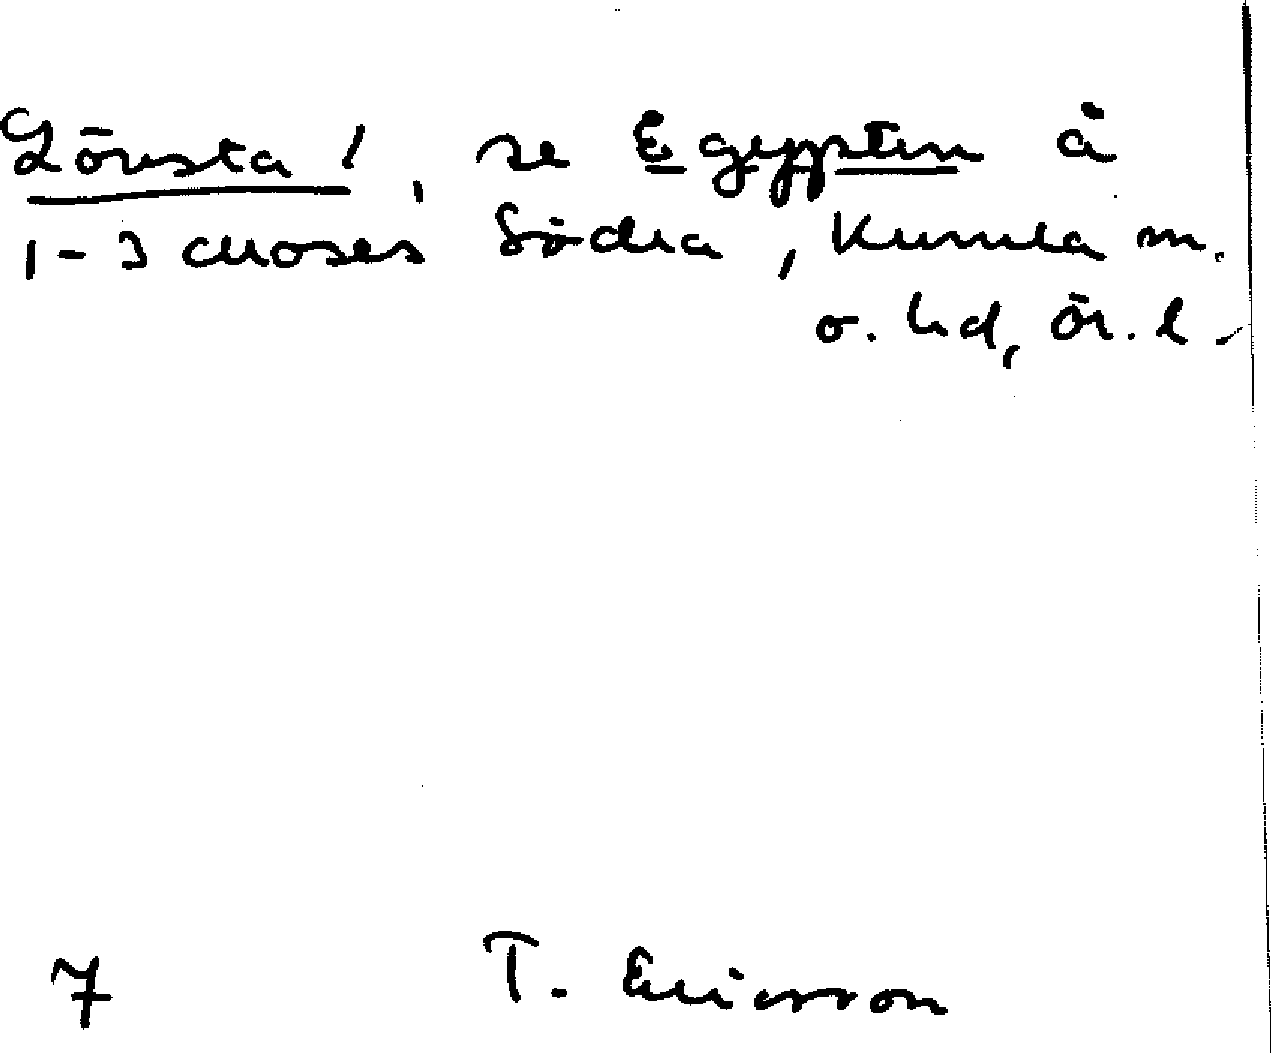 Lövsta !, se Egypten å
1-3 Moses Södra, Kumla m.
o. hd, Ör. l.
7 T. Ericsson